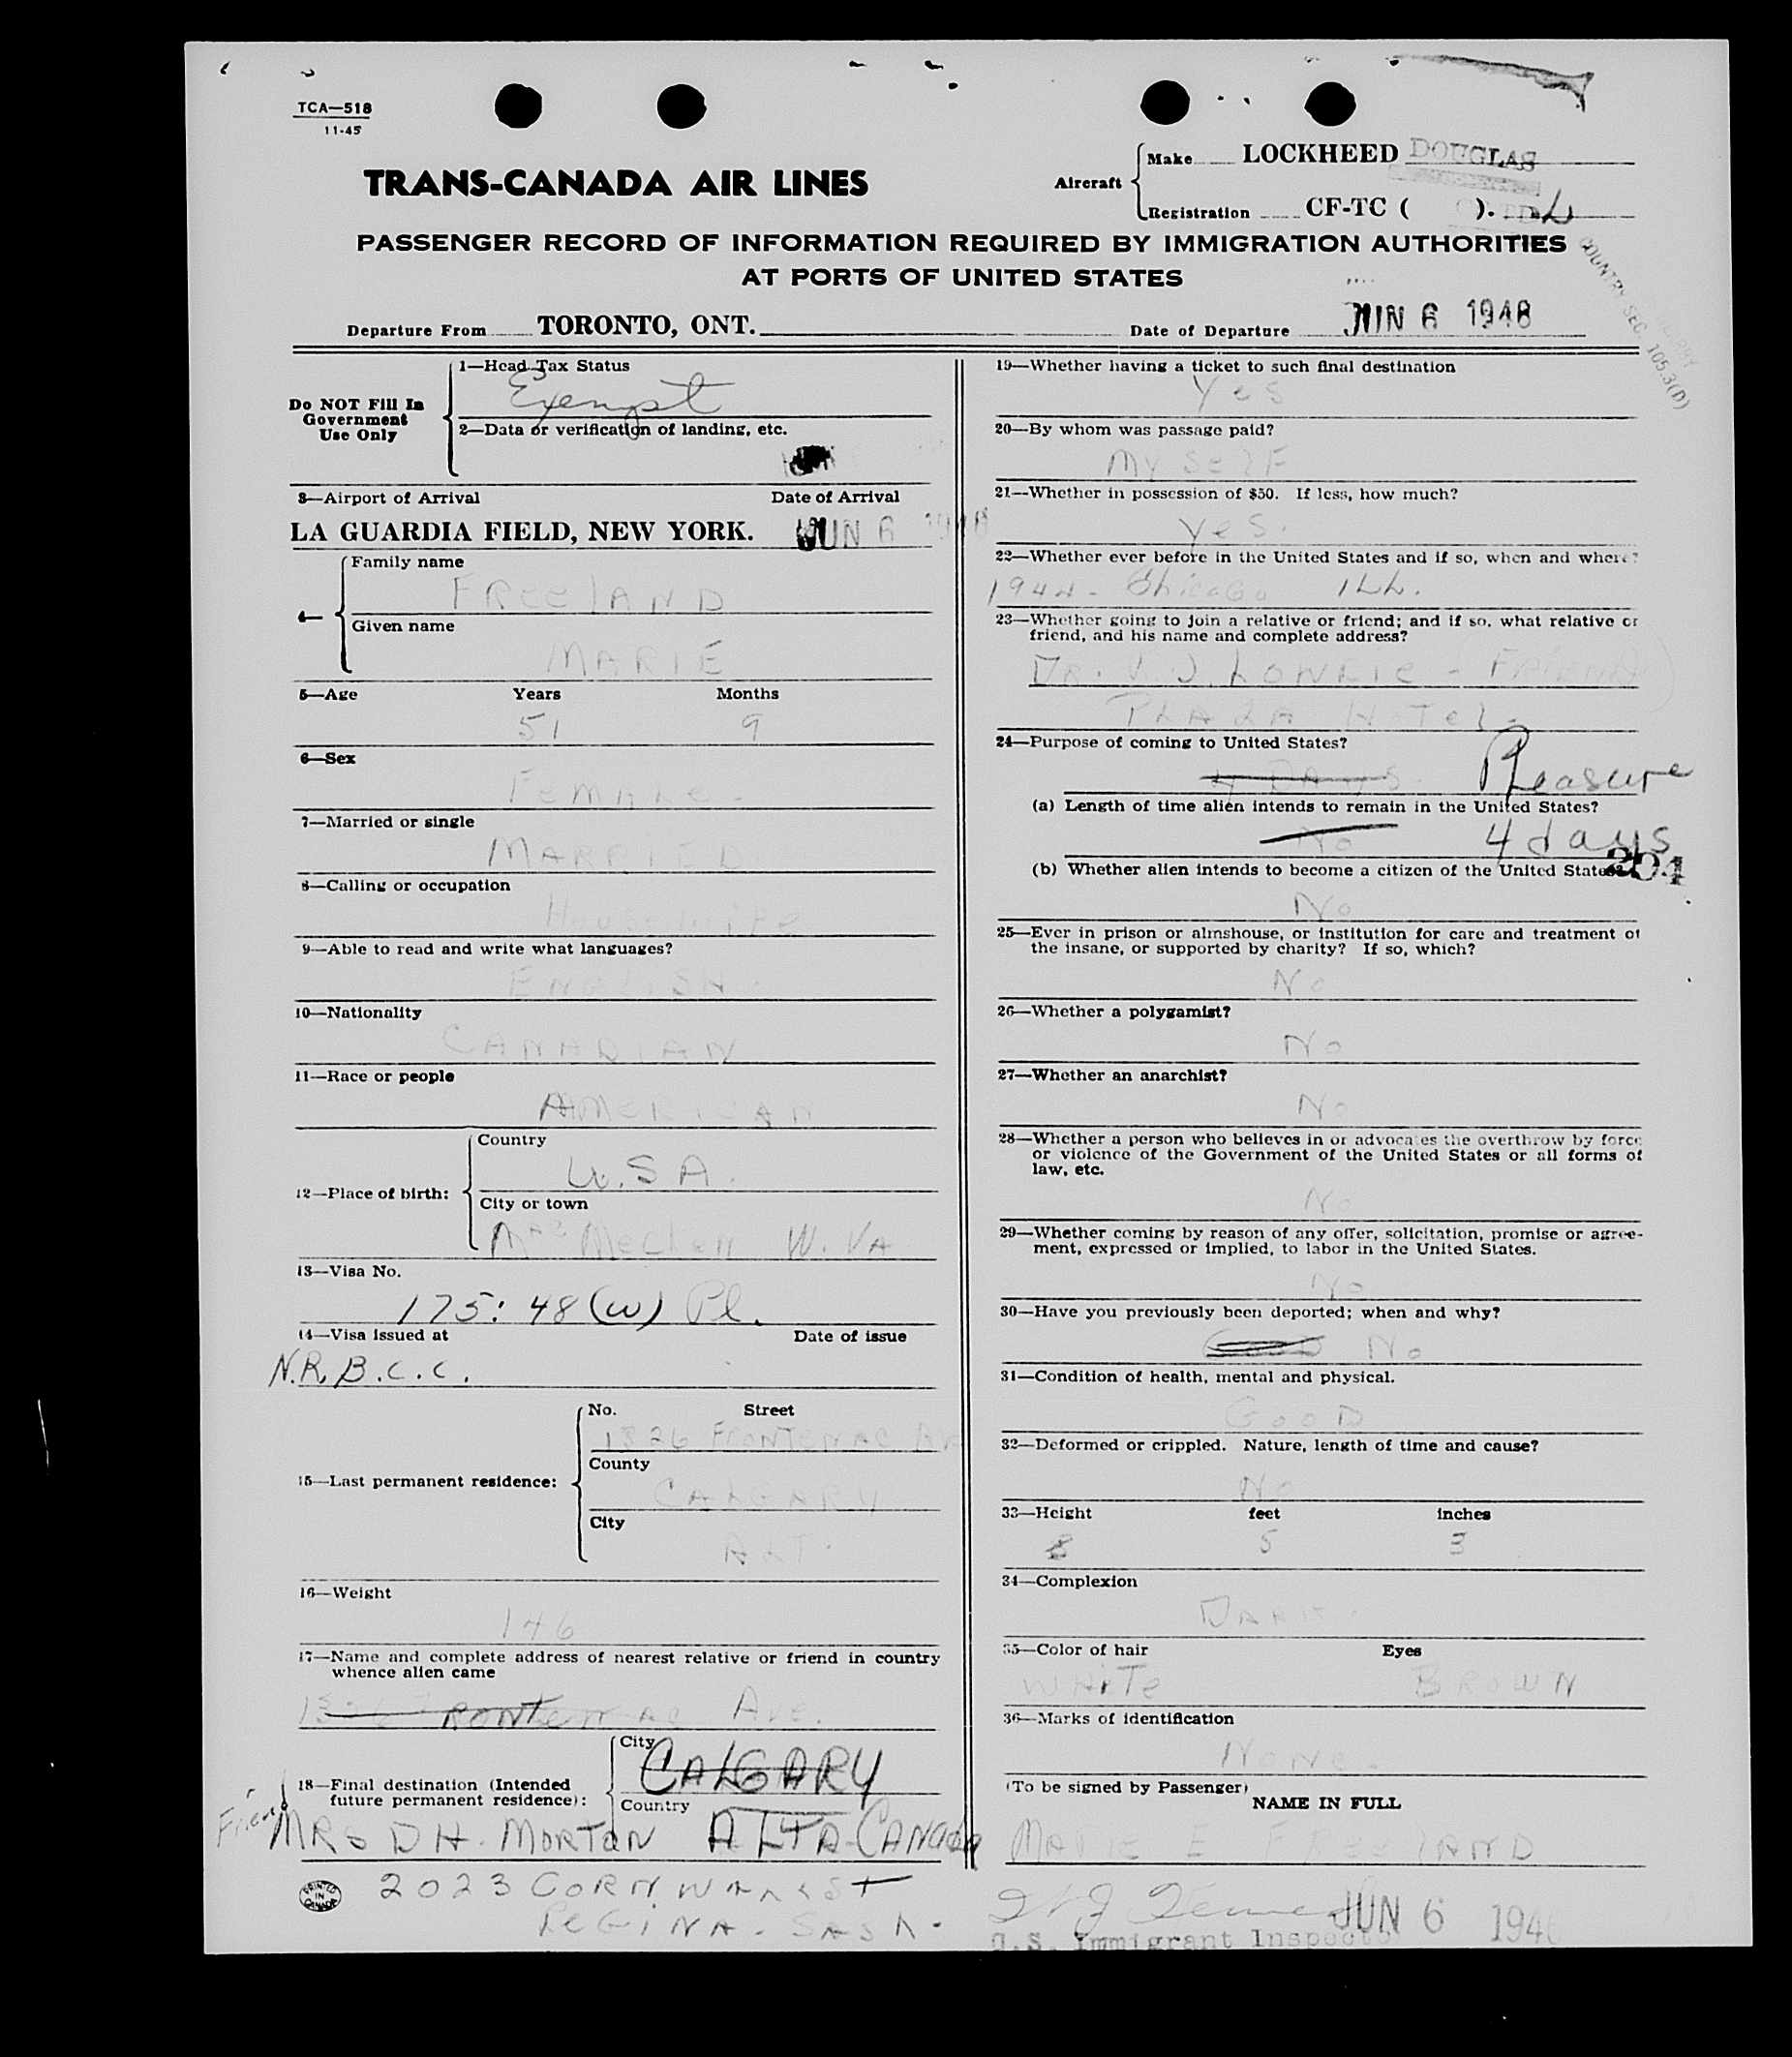 TCA—518
11-45
TRANS-CANADA AIR LINES
Aircraft
Make LOCKHEED DOUGLAS
Registration CF-TC ( ).
PASSENGER RECORD OF INFORMATION REQUIRED BY IMMIGRATION AUTHORITIES
AT PORTS OF UNITED STATES
COUNTRY SEC. 105.3(D)
Departure From TORONTO, ONT.
Date of Departure JUN 6 1948
Do NOT Fill In
Government
Use Only
1—Head Tax Status
Exempt
2—Data or verification of landing, etc.
3—Airport of Arrival Date of Arrival
LA GUARDIA FIELD, NEW YORK. JUN 6 1948
4—
Family name
FREELAND
Given name
MARIE
5—Age Years Months
51 9
6—Sex
FEMALE -
7—Married or single
MARRIED
8—Calling or occupation
HOUSEWIFE
9—Able to read and write what languages?
ENGLISH.
10—Nationality
CANADIAN
11—Race or people
AMERICAN
12—Place of birth:
Country
U.S A.
City or town
W. VA
13—Visa No.
175: 48 (W) Pl.
14—Visa issued at Date of issue
N.R.B.C.C.
15—Last permanent residence:
No. Street
FRONTENAC AV
County
CALGARY
City
ALT.
16—Weight
146
17—Name and complete address of nearest relative or friend in country
whence alien came
FRONTENAC AVE.
18—Final destination (Intended
future permanent residence):
City
CALGARY
Country
Friend MRS D H. MORTON ALTA-CANADA
2023 CORNWALL ST
REGINA - SASK.
PRINTED IN CANADA
19—Whether having a ticket to such final destination
Yes
20—By whom was passage paid?
MYSELF
21—Whether in possession of $50. If less, how much?
Yes.
22—Whether ever before in the United States and if so, when and where?
1944 - Chicago ILL.
23—Whether going to join a relative or friend; and if so, what relative or
friend, and his name and complete address?
DR. J. J. LOWRIE - (FRIEND)
PLAZA HOTEL -
24—Purpose of coming to United States?
4 DAYS. Pleasure
(a) Length of time alien intends to remain in the United States?
No 4 days
204
(b) Whether alien intends to become a citizen of the United States?
No
25—Ever in prison or almshouse, or institution for care and treatment of
the insane, or supported by charity? If so, which?
No
26—Whether a polygamist?
No
27—Whether an anarchist?
No
28—Whether a person who believes in or advocates the overthrow by force
or violence of the Government of the United States or all forms of
law, etc.
No
29—Whether coming by reason of any offer, solicitation, promise or agree-
ment, expressed or implied, to labor in the United States.
No
30—Have you previously been deported; when and why?
GOOD No
31—Condition of health, mental and physical.
GOOD
32—Deformed or crippled. Nature, length of time and cause?
No
33—Height feet inches
5 3
34—Complexion
DARK.
35—Color of hair Eyes
WHITE BROWN
36—Marks of identification
NONE.
(To be signed by Passenger)
NAME IN FULL
MARIE E FREELAND
JUN 6 194
U.S. Immigrant Inspector